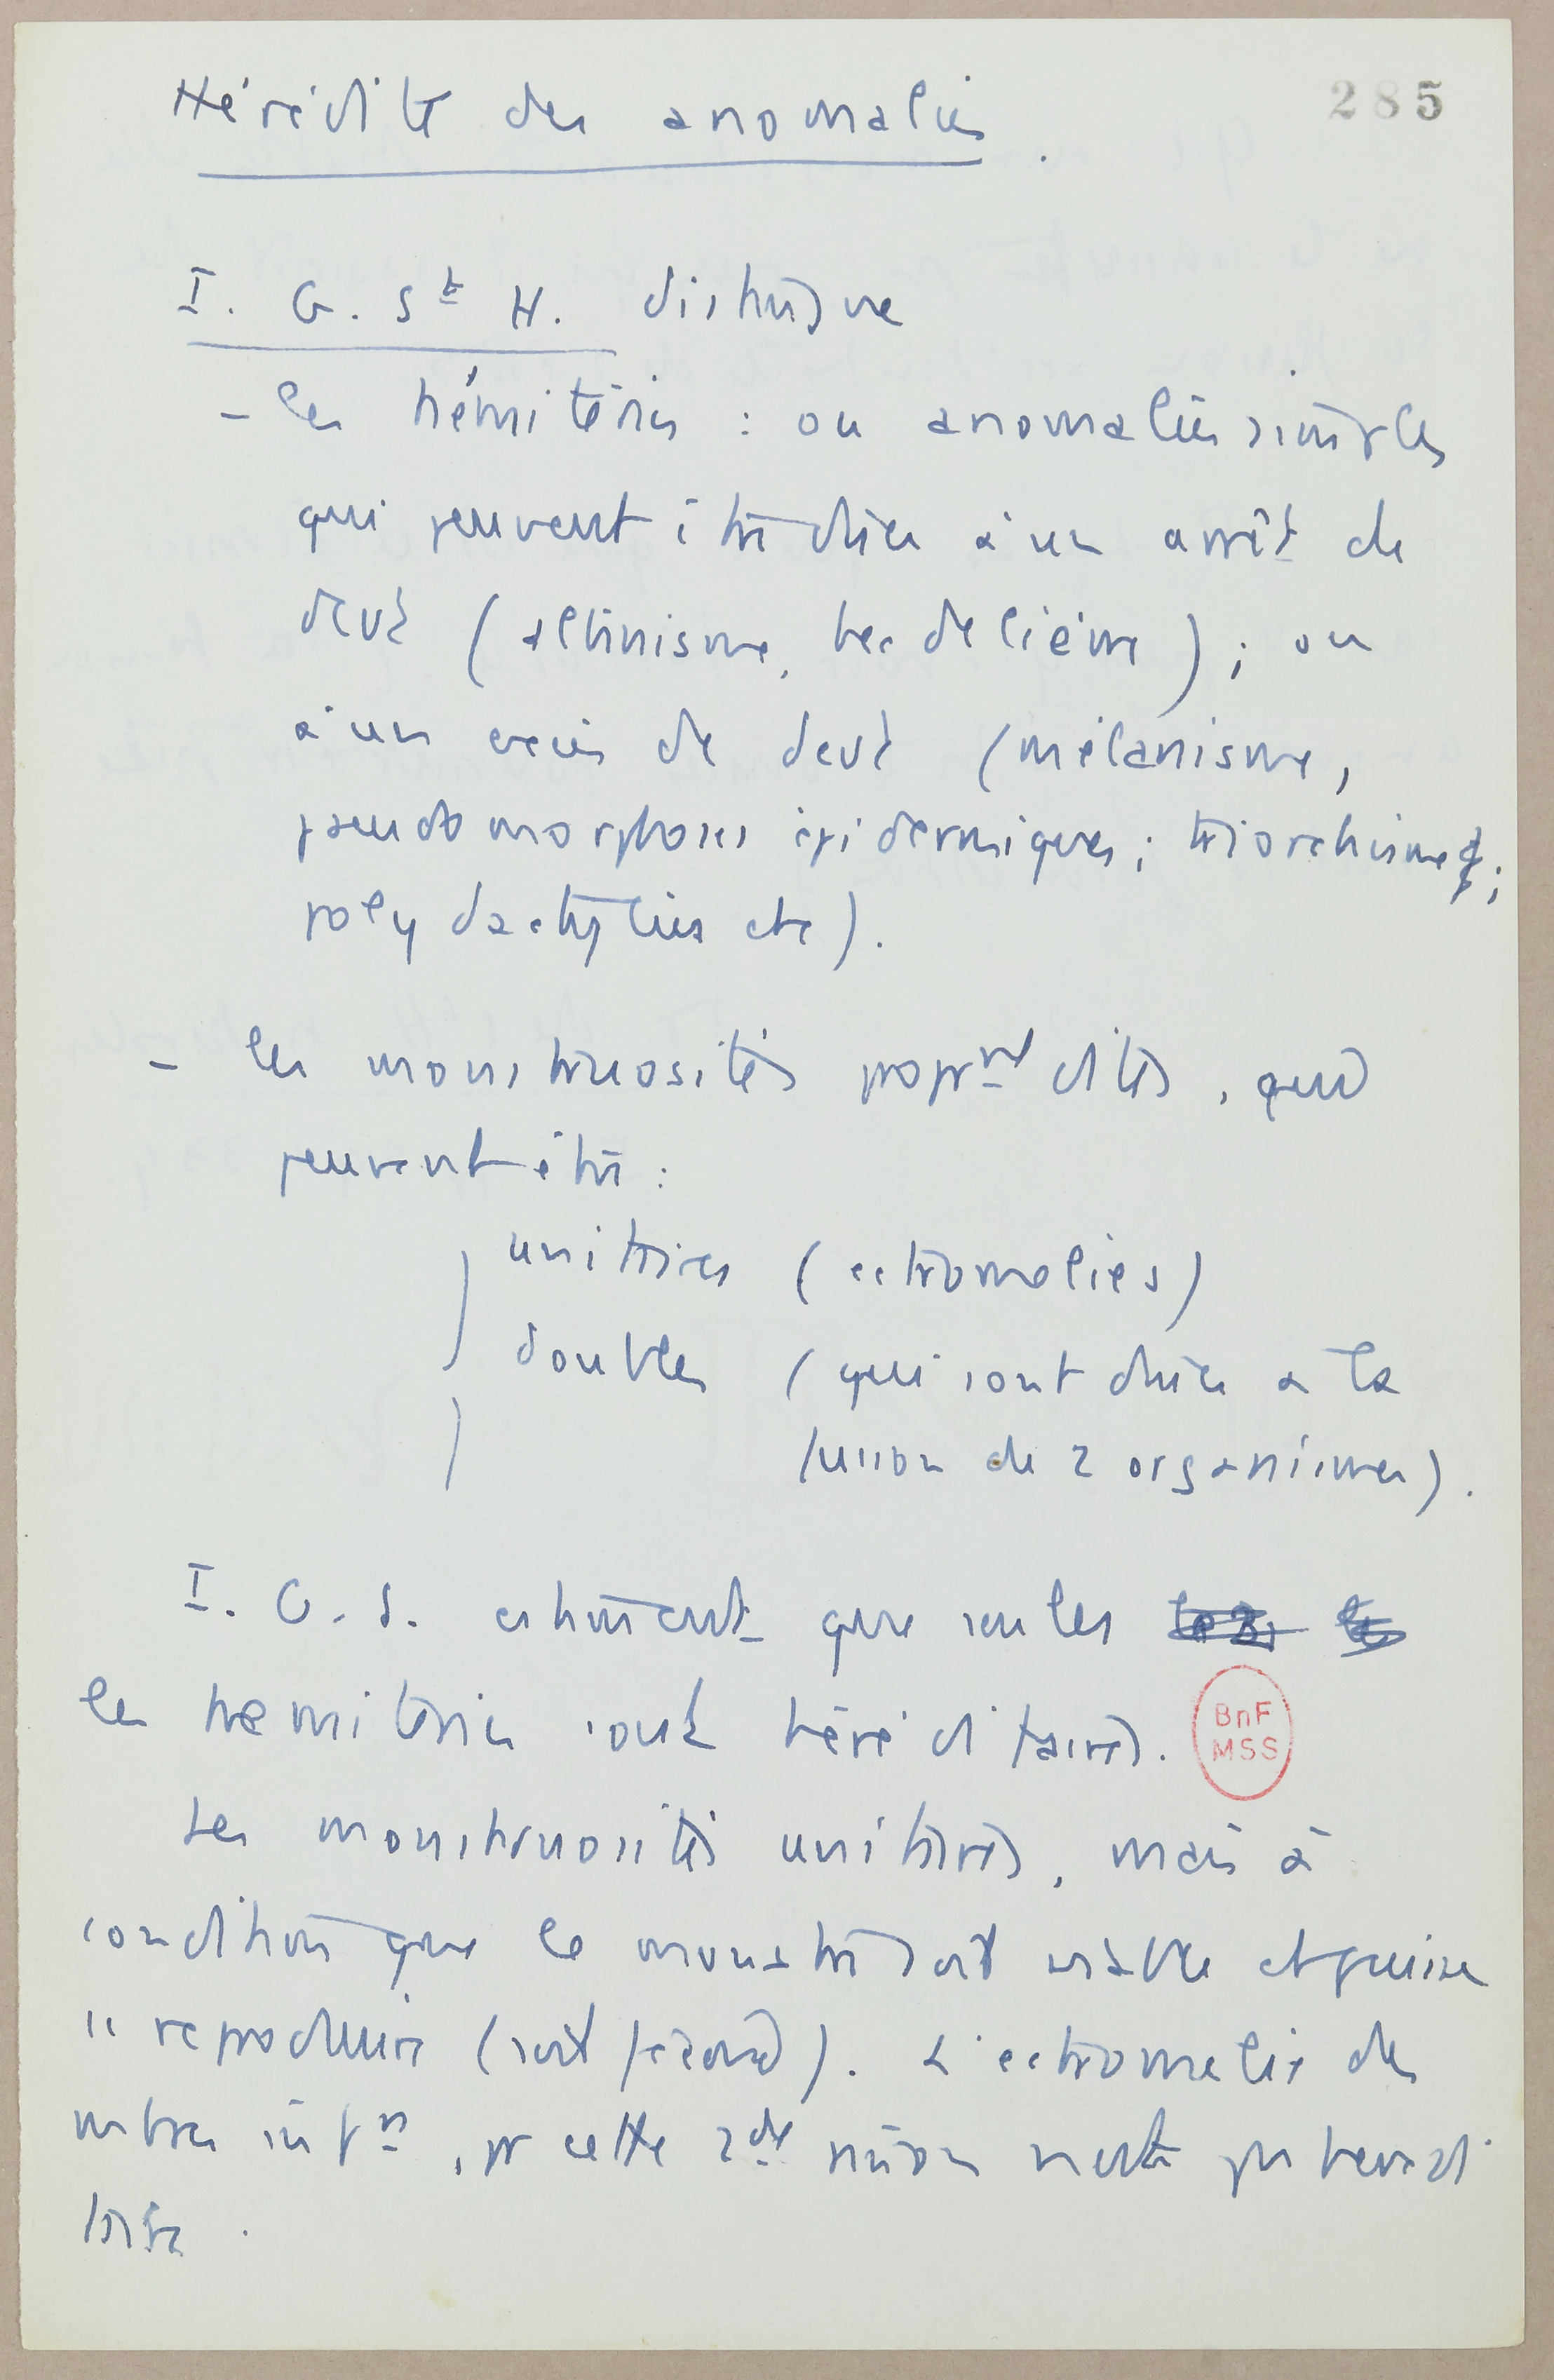 285
Hérédité des anomalies.
I. G. St H. distingue
- les hémitéries : ou anomalies simples
qui peuvent être dues à un arrêt de
devt (albinisme, bec de lièvre) ; ou
à un excès de devt (mélanisme,
pseudomorphoses épidermiques ; triorchisme ;
polydactylies etc).
- les monstruosités proprmt dites, qui
peuvent être :
unitaires (ectromelies)
doubles (qui sont dues à la
fusion de 2 organismes).
I. G. S. estimait que seules
les hemiteries sont héréditaires.
BnF
MSS
Les monstruosités unitaires, mais à
condition que le monstre soit viable et puisse
se reproduire (soit fécond). L'ectromelie des
mbres infrs, pr cette 2de raison n'est pas heredi
taire.